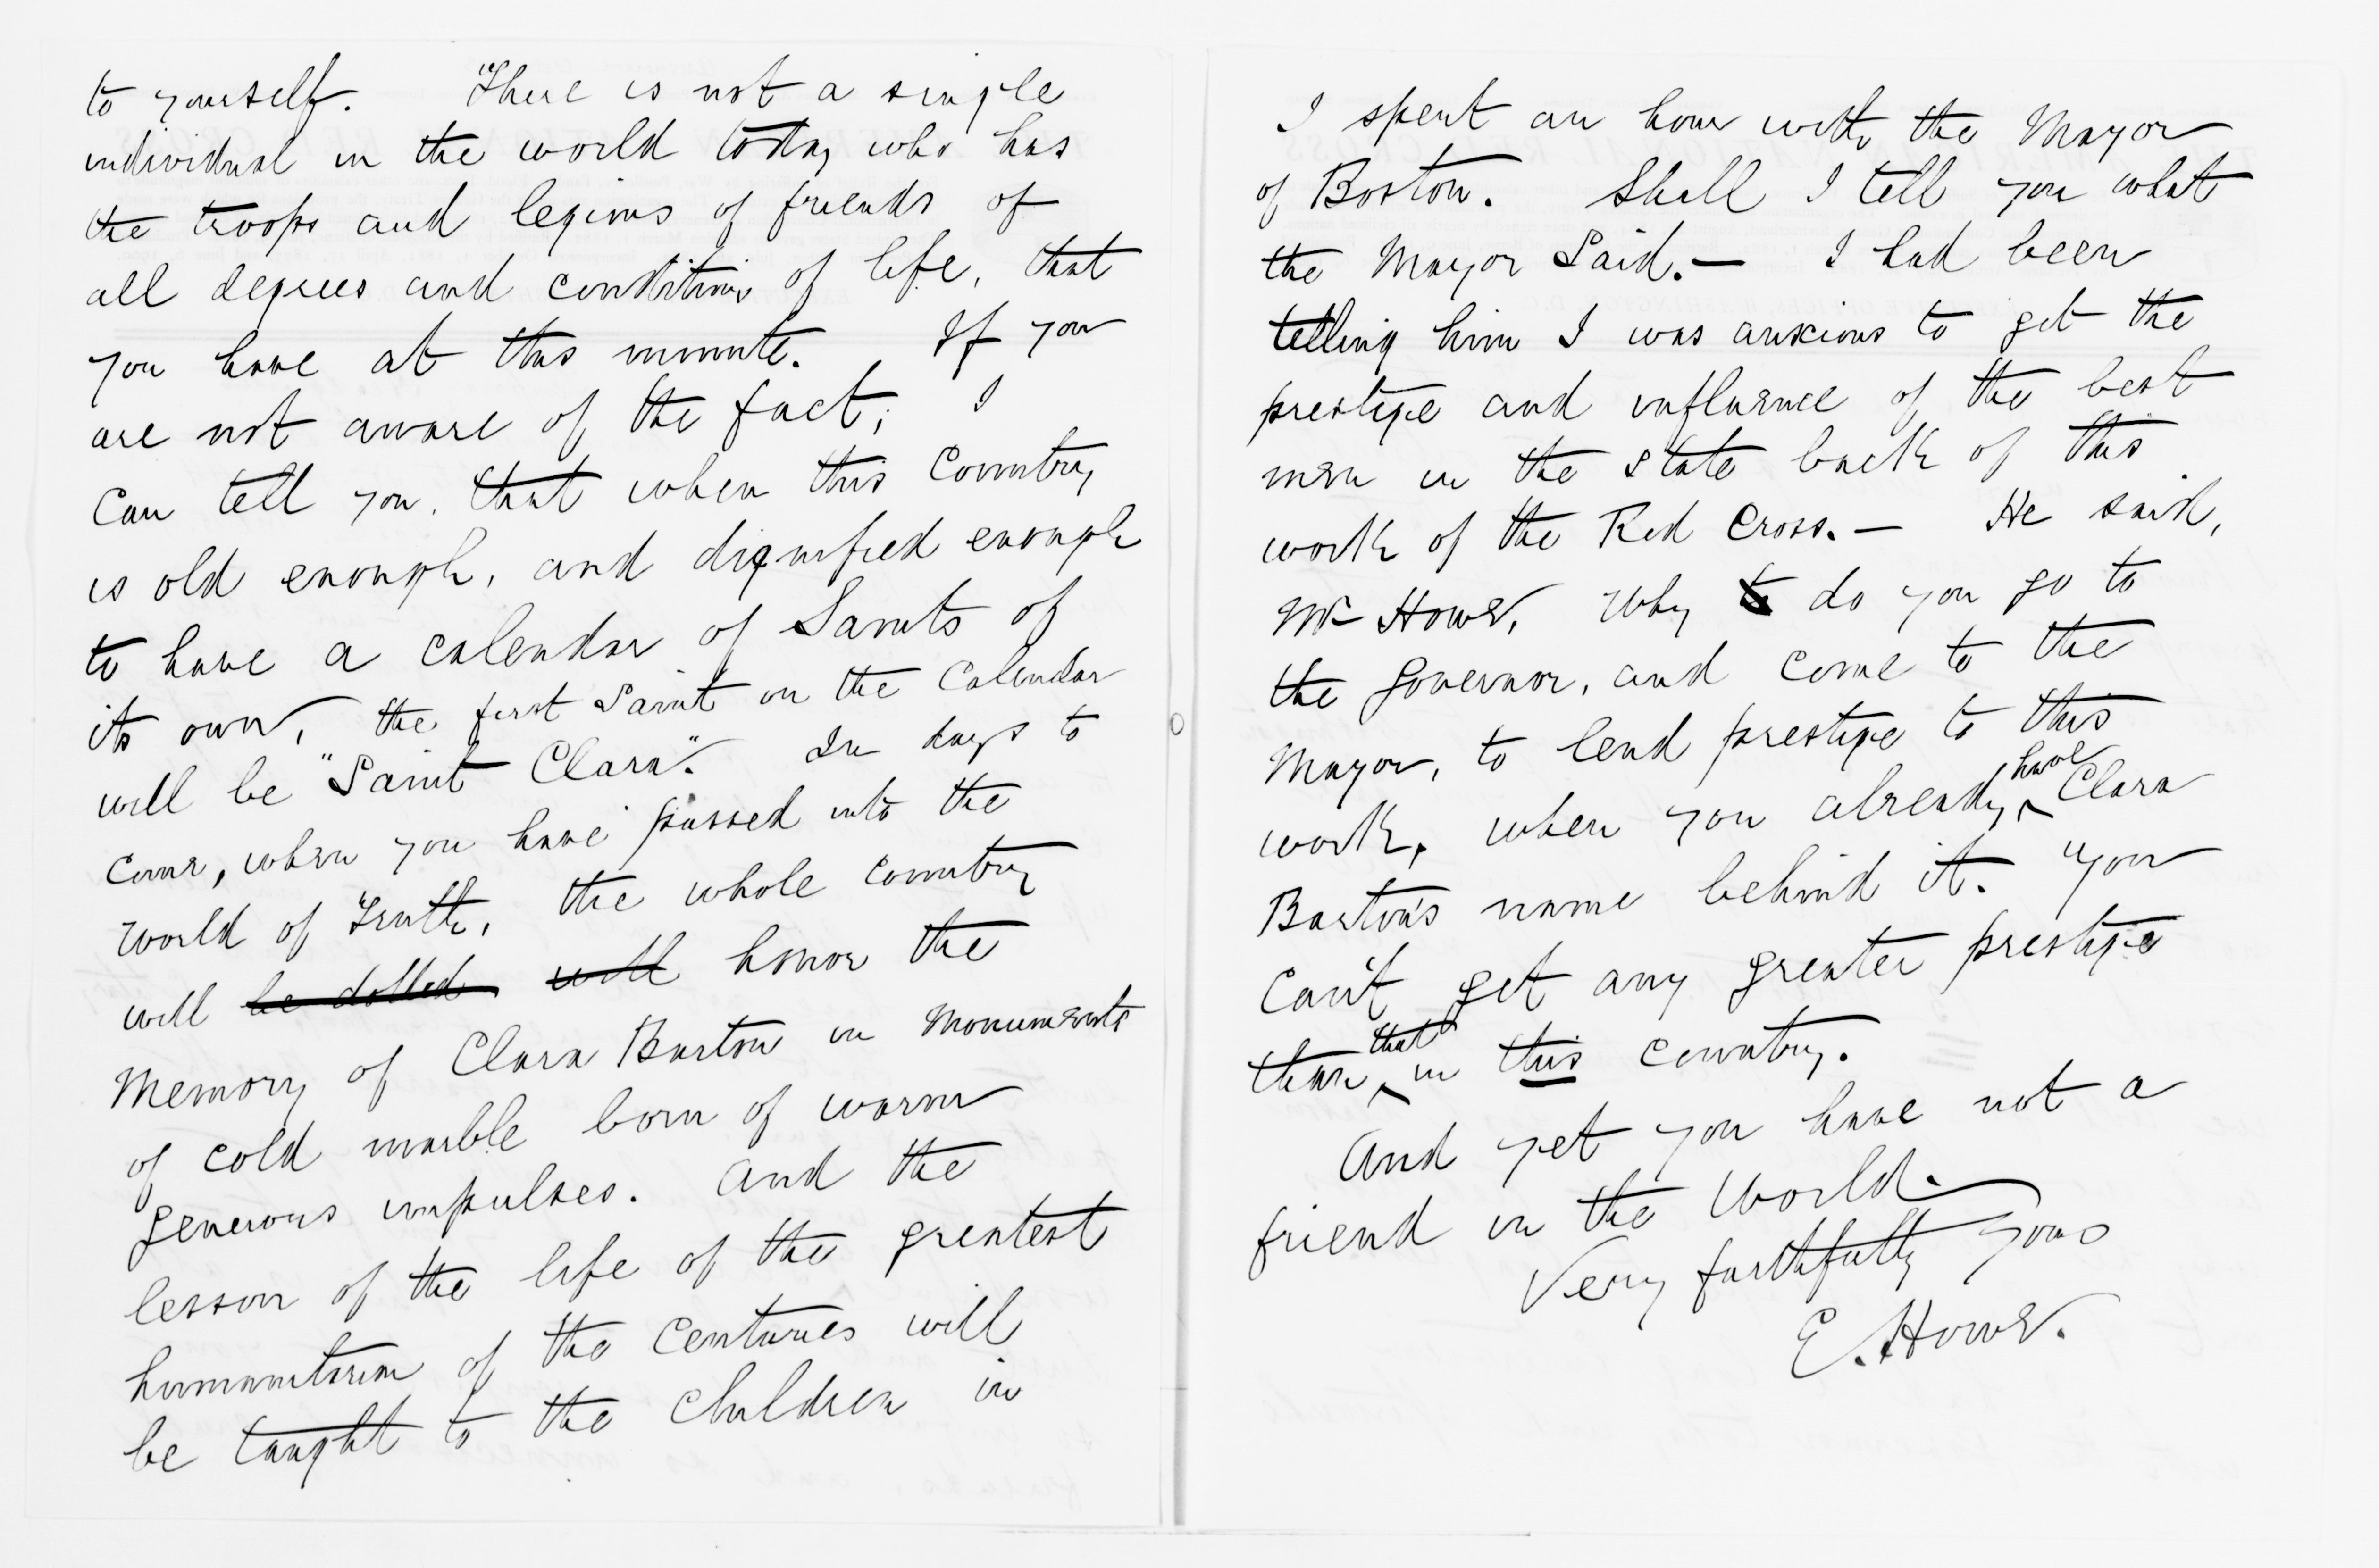 to yourself. There is not a single
individual in the world today who has
the troops and legions of friends of
all degrees and conditions of life, that
you have at this minute. If you
are not aware of the fact; I
Can tell you, that when this Country
is old enough, and dignified enough
to have a calendar of Saints of
its own, the first Saint on the Calendar
will be "Saint Clara". In days to
come, when you have passed into the
World of Truth, the whole country
will be dolled will honor the
Memory of Clara Barton in Monuments
of cold marble born of warm
generous impulses. And the
lesson of the life of the greatest
humanitarian of the Centuries will
be taught to the Children in
I spent an hour with the Mayor
of Boston. Shall I tell you what
the Mayor Said.— I had been
telling him I was anxious to get the
prestige and influence of the best
men in the State back of this
work of the Red Cross.— He said,
Mr Howe, Why to do you go to
the Governor, and come to the
Mayor, to lend prestige to this
work, when you already have Clara
Barton's name behind it. You
Can't get any greater prestige
than that in this Country.
And yet you have not a
friend in the World.
Very faithfully yours
E. Howe.